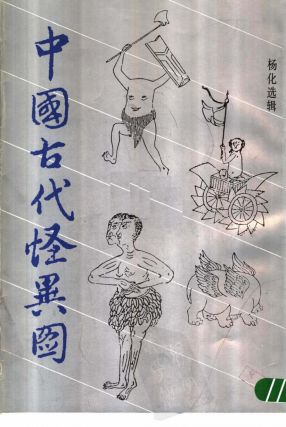 中國古代怪異图
杨化选辑